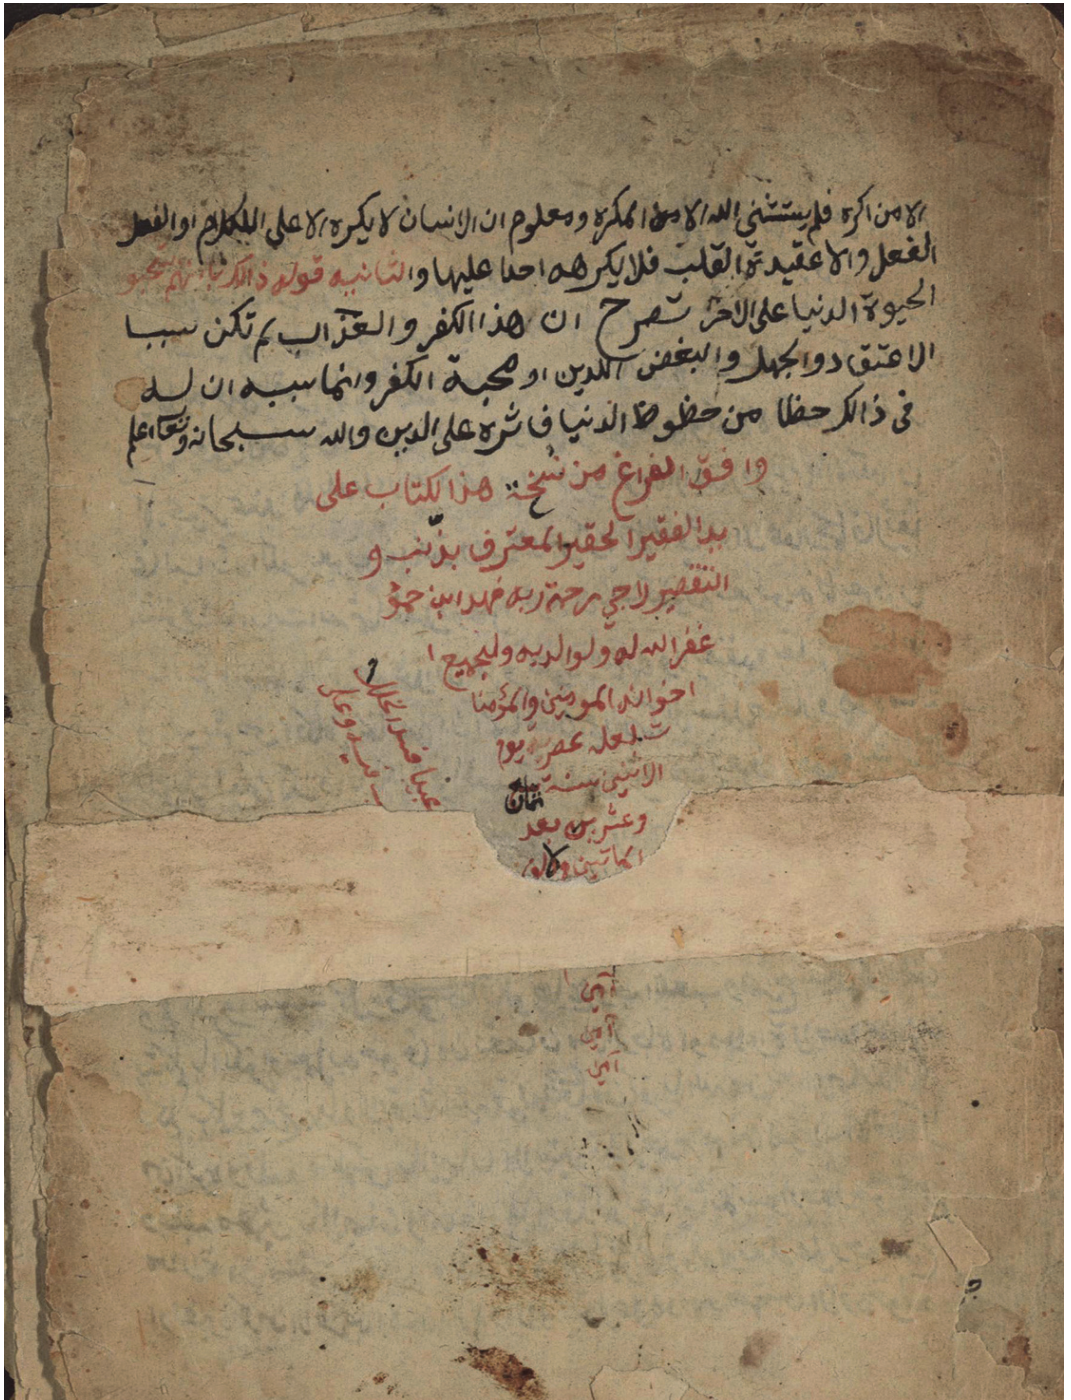 الا من اكره فلم يستثني الله الا من المكره ومعلوم ان الانسان لا يكره الا على الكلام او الفعل
الفعل والا عقيدة القلب فلا يكرهه احدا عليها والثانيه قوله ذالك بانهم استحبو
الحيوة الدنيا على الاخرة تصرح ان هذا الكفر والعذاب لم تكن سببا
الاعتقاد والجهل والبغض للدين او محبة الكفر وانما سببه ان له
في ذالك حظا من حظوظ الدنيا فاثره على الدين والله سبحانه وتعا اعلم
وافق الفراغ من نسخة هذا الكتاب على
يد الفقير الحقير المعترف بذنب و
التقصير لاجي رحمة ربه فهد ابن
غفر الله له ولوالديه ولجميع ا
اخوانه المومنين والمؤمنا
ت لعله عصر يوم
الاثنين سنة ثمان
وعشرين بعد
الماتين والالف
امين
امين
امين